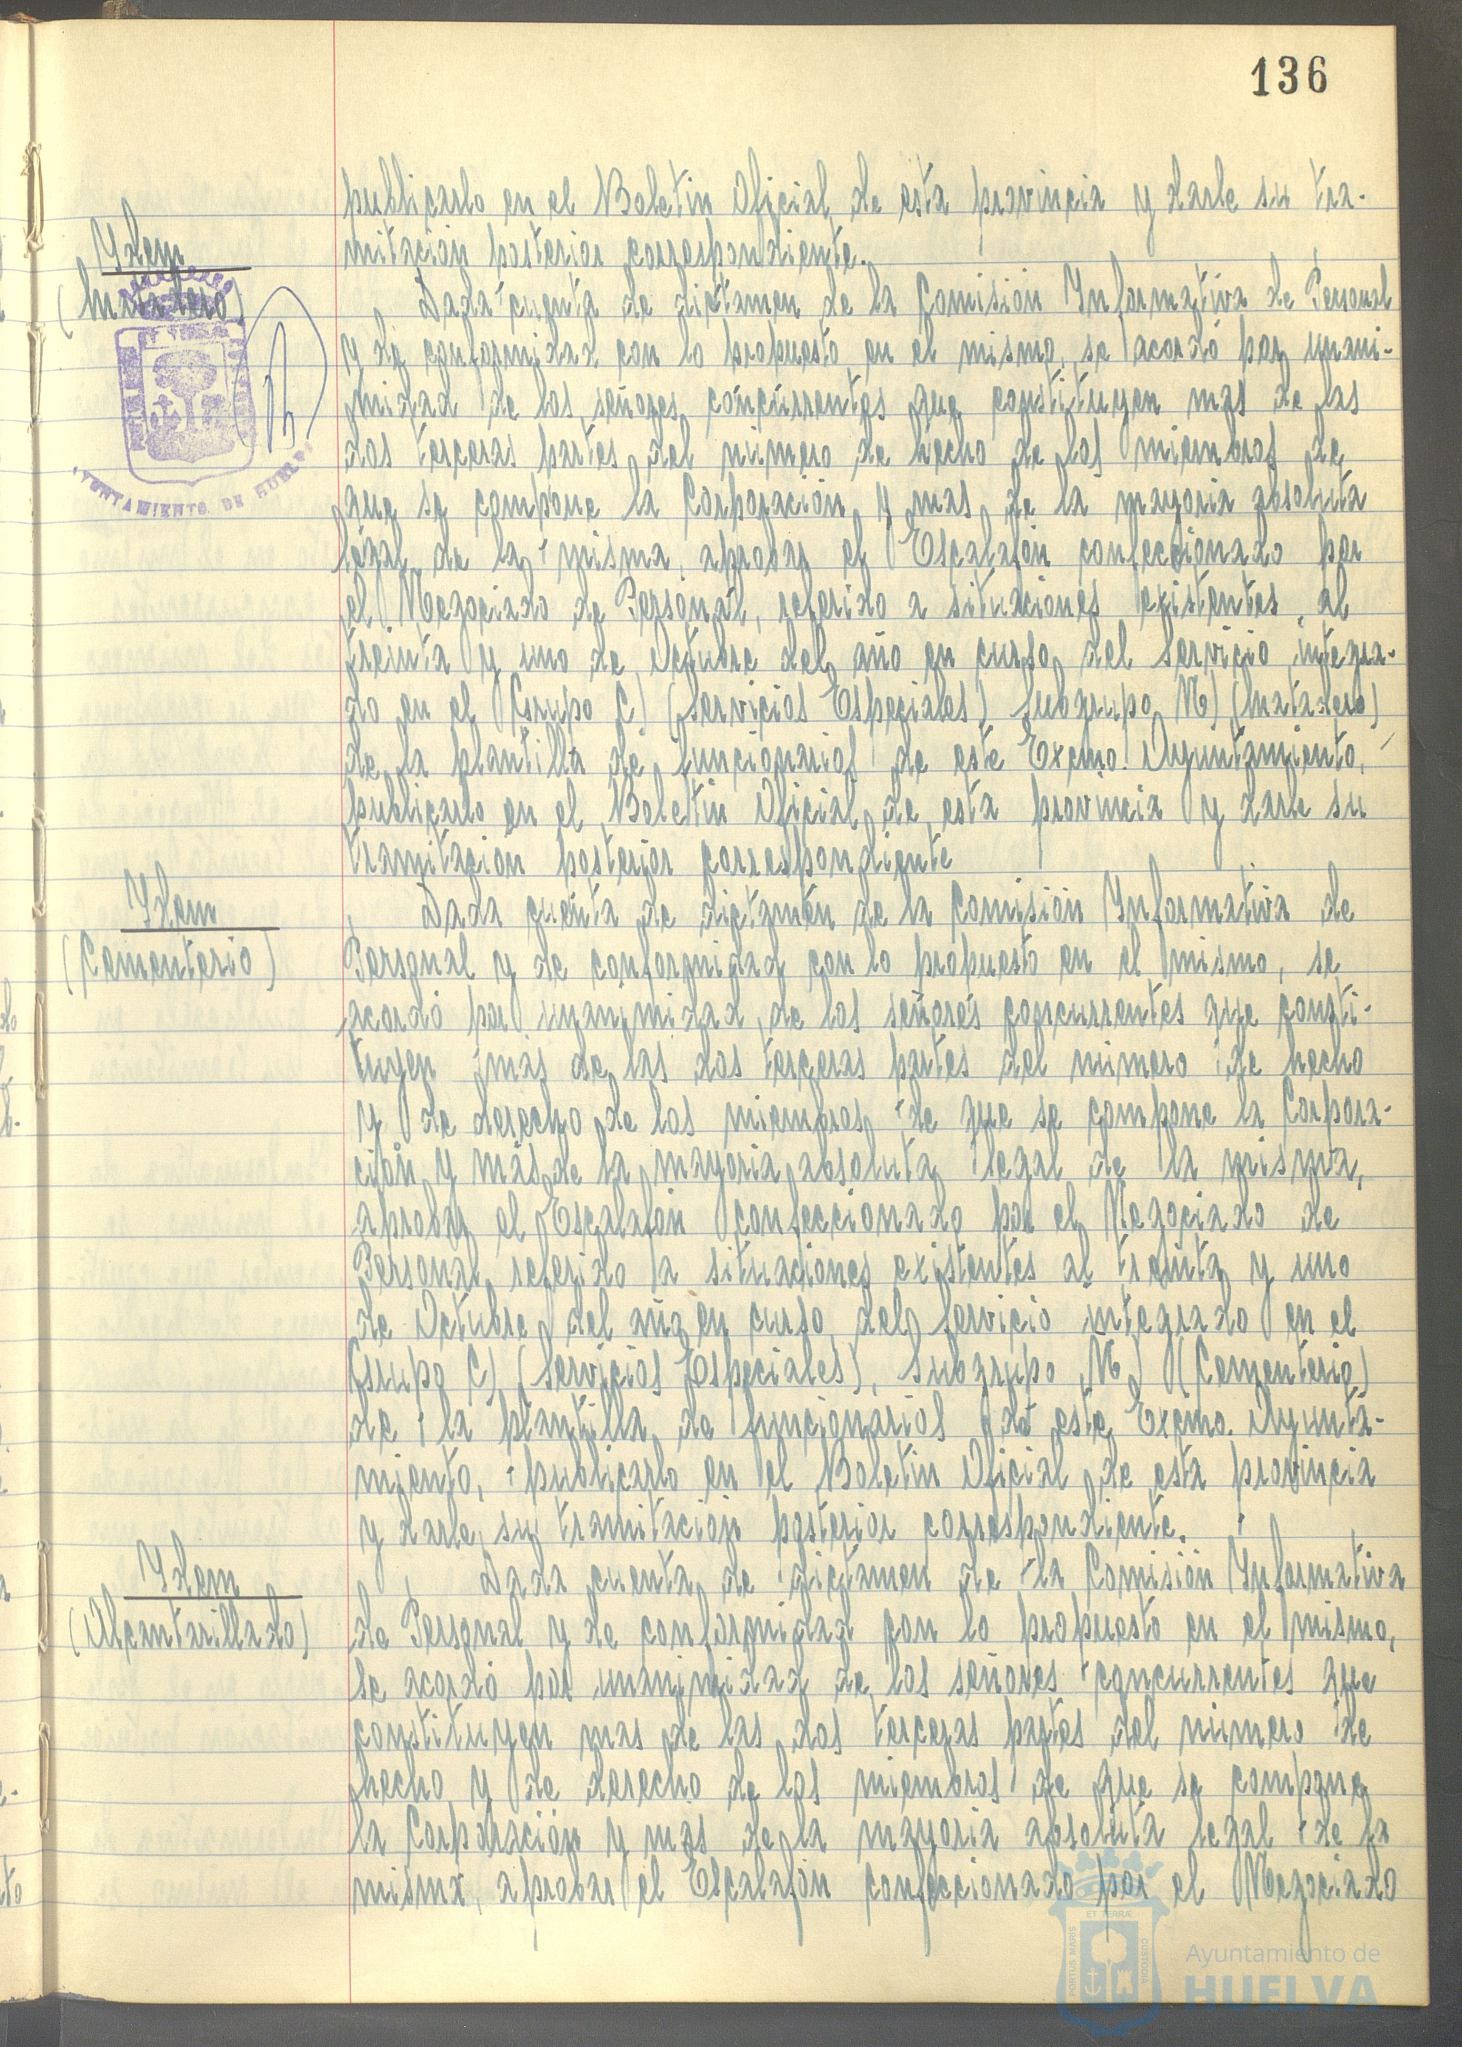 136
publicarlo en el Boletin Oficial de esta provincia y darle su tra-
mitación posterior correspondiente.
Ydem
(Matadero)
Dada cuenta de dictamen de la Comisión Informativa de Personal
y de conformidad con lo propuesto en el mismo, se acordó por unani-
midad de los señores concurrentes que constituyen mas de las
dos terceras partes del número de hecho de los miembros de
que se compone la Corporación y mas de la mayoria absoluta
legal de la misma, aprobar el Escalafón confeccionado por
el Negociado de Personal, referido a situaciones existentes al
treinta y uno de Octubre del año en curso, del servicio integra-
do en el Grupo C) (Servicios Especiales) Subgrupo M) (Matadero)
de la plantilla de funcionarios de este Excmo. Ayuntamiento,
publicarlo en el Boletin Oficial de esta provincia y darle su
tramitación posterior correspondiente
Ydem
(Cementerio)
Dada cuenta de dictamen de la Comisión Informativa de
Personal y de conformidad con lo propuesto en el mismo, se
acordó por unanimidad de los señores concurrentes que consti-
tuyen más de las dos terceras partes del número de hecho
y de derecho de los miembros de que se compone la Corpora-
ción y más de la mayoria absoluta legal de la misma,
aprobar el Escalafón confeccionado por el Negociado de
Personal referido a situaciones existentes al treinta y uno
de Octubre del año en curso, del Servicio integrado en el
Grupo C) (Servicios Especiales), Subgrupo (Cementerio)
de la plantilla de funcionarios de este Excmo. Ayunta-
miento, publicarlo en el Boletin Oficial de esta provincia
y darle su tramitación posterior correspondiente.
Ydem
(Alcantarillado)
Dada cuenta de dictamen de la Comisión Informativa
de Personal y de conformidad con lo propuesto en el mismo,
se acordó por unanimidad de los señores concurrentes que
constituyen mas de las dos terceras partes del número de
hecho y de derecho de los miembros de que se compone
la Corporación y mas de la mayoria absoluta legal de la
misma, aprobar el Escalafón confeccionado por el Negociado
AYUNTAMIENTO DE HUELVA
PORTUS MARIS
ET TERRÆ
CUSTODIA
Ayuntamiento de
HUELVA